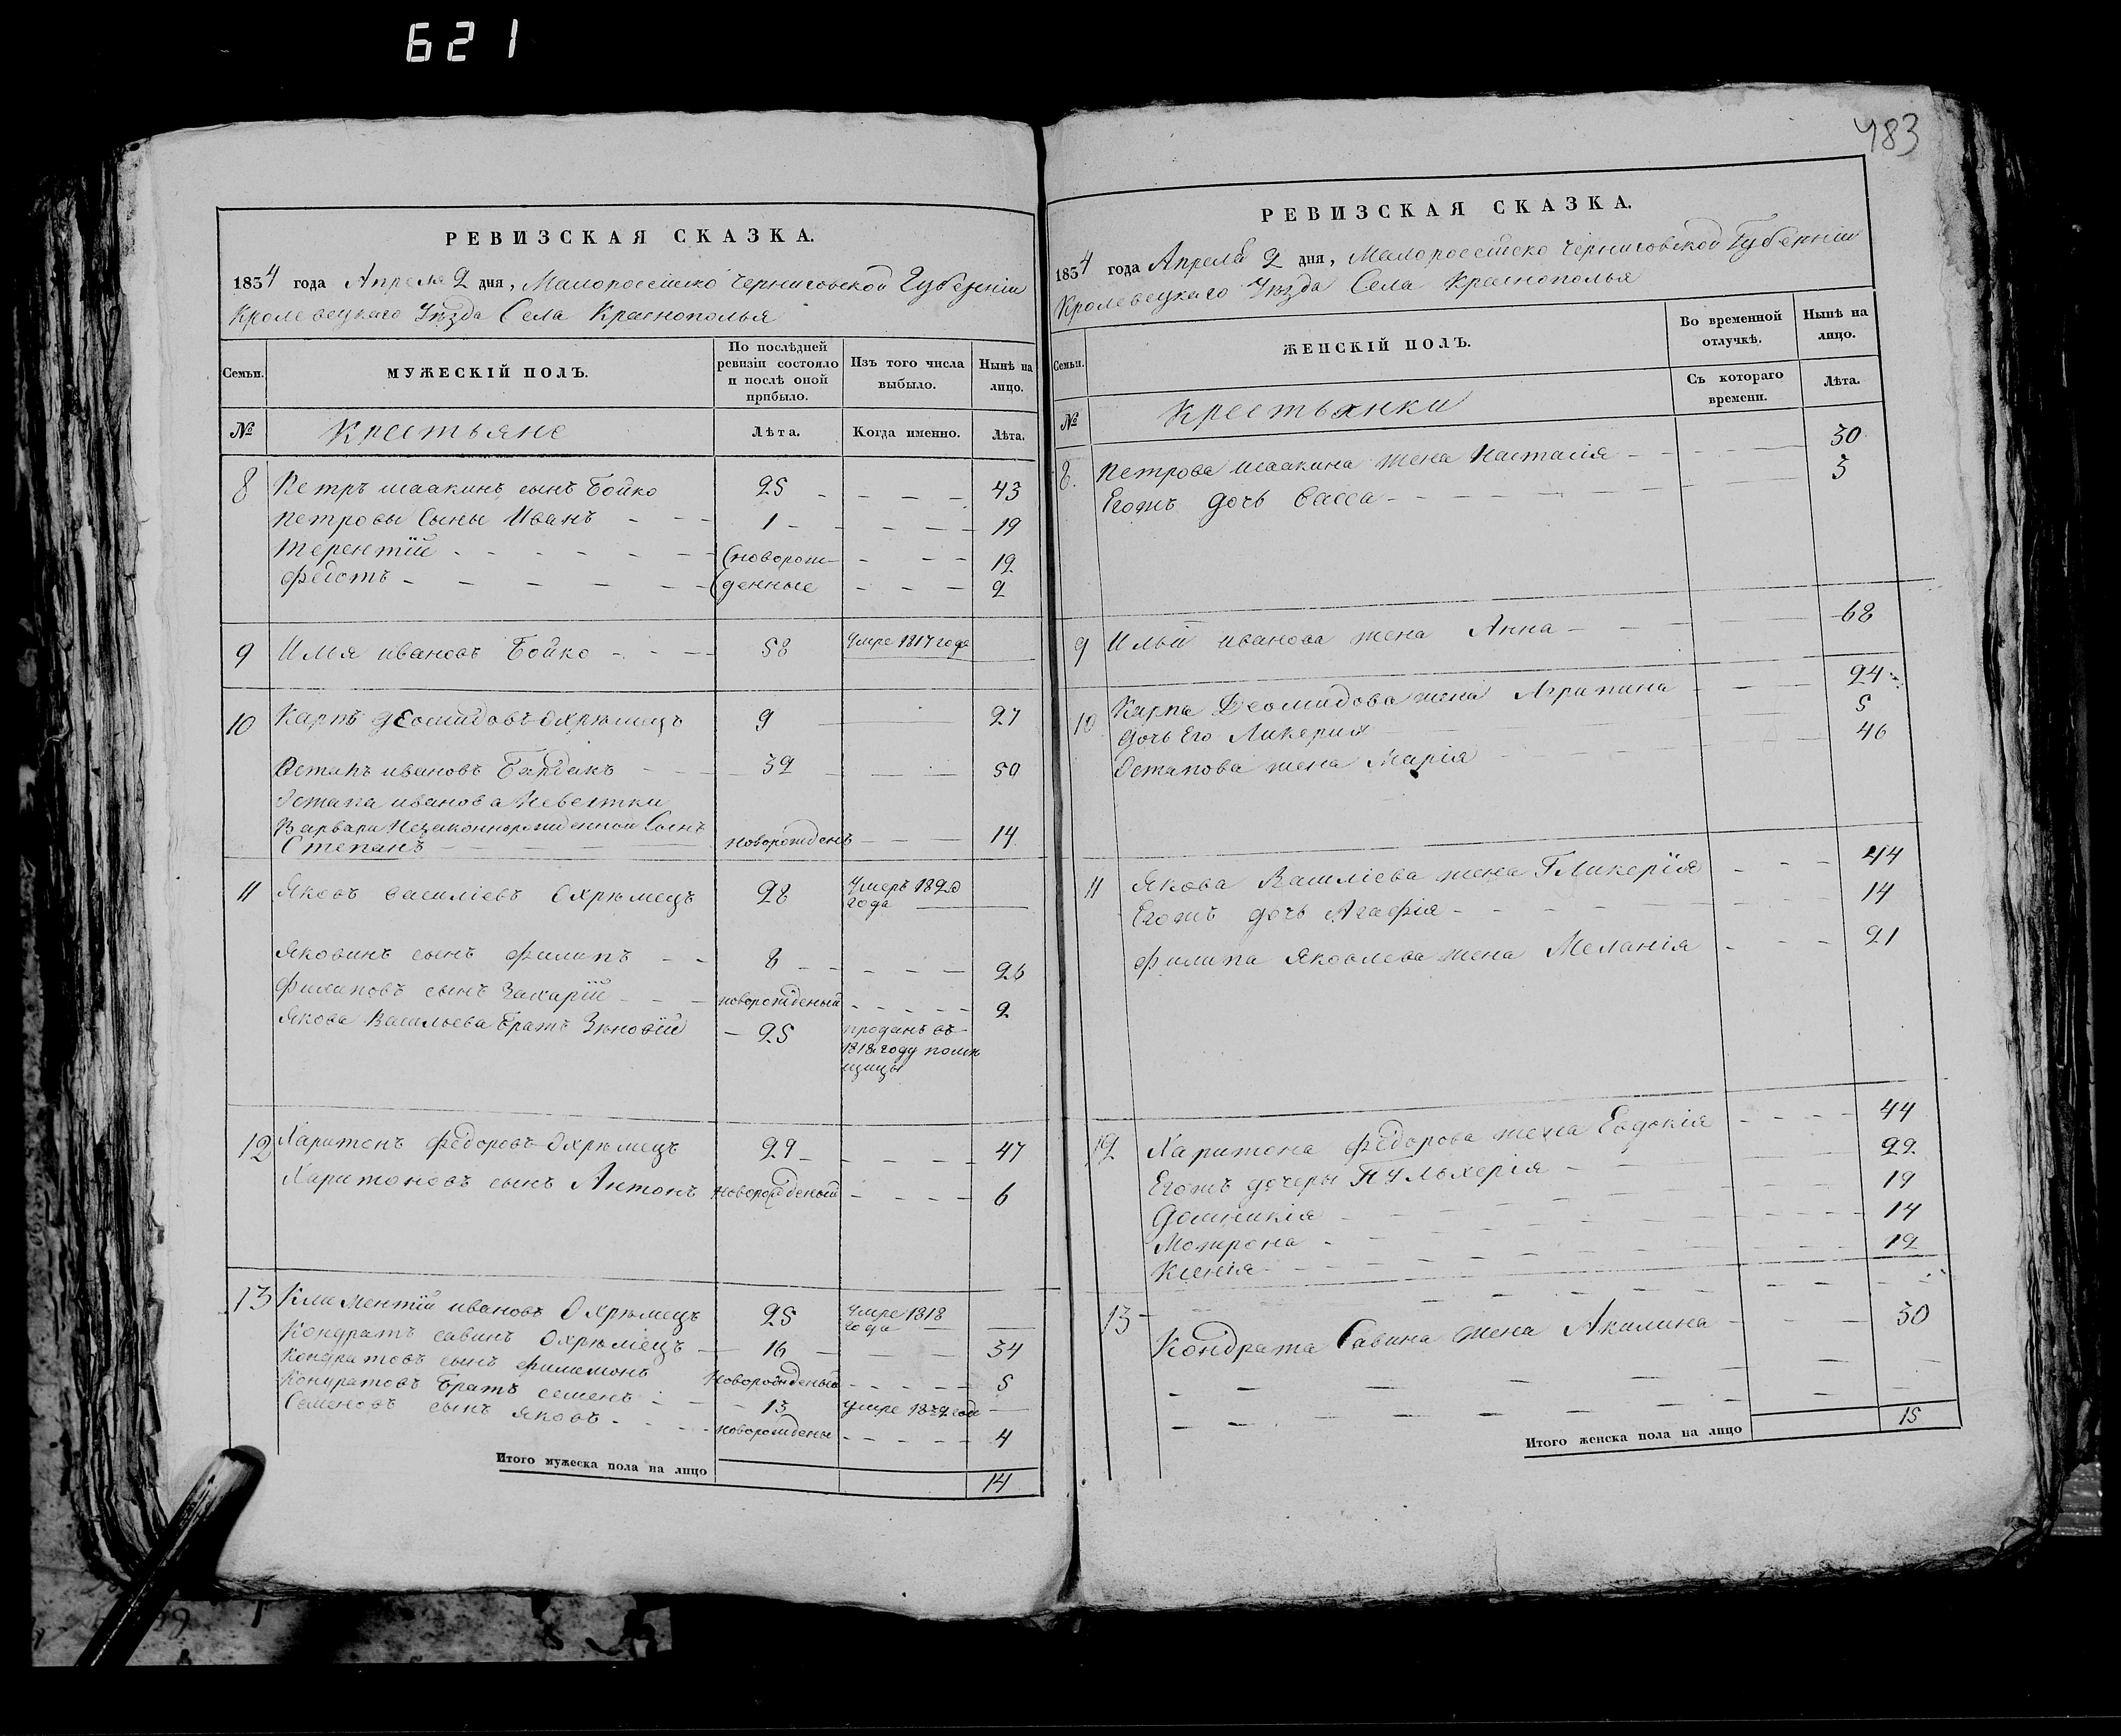 621
483
РЕВИЗСКАЯ СКАЗКА.
1834 года Апреля 2 дня, Малороссійско Черниговской Губерніи
Кролевецкаго Уѣзда Села Краснополья
Семьи.
МУЖЕСКІЙ ПОЛЪ.
По послѣдней ревизіи состояло и послѣ оной прибыло.
Изъ того числа выбыло.
Нынѣ на лицо.
№
Крестьяне
Лѣта.
Когда именно.
Лѣта.
8 Петръ Исаакинъ сынъ Бойко 25 - - - - 43
Петровы Сыны Иванъ - - - 1 - - - - - 19
Терентій - - - - - - - (новорож- - - - 12
Федотъ - - - - - - (денные - - - 2
9 Илья ивановъ Бойко - - - 58 Умре 1817 года
10 Карпъ деомидовъ Охрѣмецъ 9 27
Остапъ ивановъ 32 50
Остапа иванова Невестки
Варвари Незаконнорожденной Сынъ
Степанъ новорожденъ 14
11 Яковъ василіевъ Охрѣмецъ 28 Умеръ 1820 года
Яковинъ сынъ Филипъ - - 8 - - - - - 26
Филиповъ сынъ Захарій - - - новорожденый - - - - - 2
Якова Васильева братъ Зѣновій - 25 проданъ въ
1818 году помѣ
щицы
12 Харитонъ Федоровъ Охрѣмецъ 29 - - - - - 47
Харитоновъ сынъ Антонъ новорожденый - - - - 6
13 Климентій ивановъ Охрѣмецъ 25 Умре 1818 года
Кондратъ савинъ Охрѣмецъ - 16 - 34
Кондратовъ сынъ Филимонъ новорожденый - - - - - 5
Кондратовъ братъ семенъ - - - 13 умре 1832 года
Семеновъ сынъ яковъ - - - - новорожденый - - - - - 4
Итого мужеска пола на лицо 14
РЕВИЗСКАЯ СКАЗКА.
1834 года Апреля 2 дня, Малороссійско Черниговской Губерніи
Кролевецкаго Уѣзда Села Краснополья
Семьи.
ЖЕНСКІЙ ПОЛЪ.
Во временной отлучкѣ.
Нынѣ на лицо.
Съ котораго времени.
Лѣта.
№
Крестьянки
8. Петрова Исаакина жена Настасія - - - - - 30
Егожъ дочь Васса - - - - - - - 3
9 Ильи иванова жена Анна - - - 68
10 Карпа Деомидова жена Агрипина - - - 24
Дочь Его Ликерия 5
Остапова жена Марія 46
11 Якова Василіева жена Гликерїя - - - - 44
Егожъ дочь Агафія - - - - - - - 14
Филипа Яковлева жена Меланія - - - - 21
12 Харитона Федорова жена Евдокія - - - - 44
Егожъ дочеры Пульхерія - - - 22
Домникія - - - 19
Мотрона - - - 14
Ксенія - - - 12
13 - - - - - - -
Кондрата Савина жена Акилина - - - - 30
Итого женска пола на лицо 15